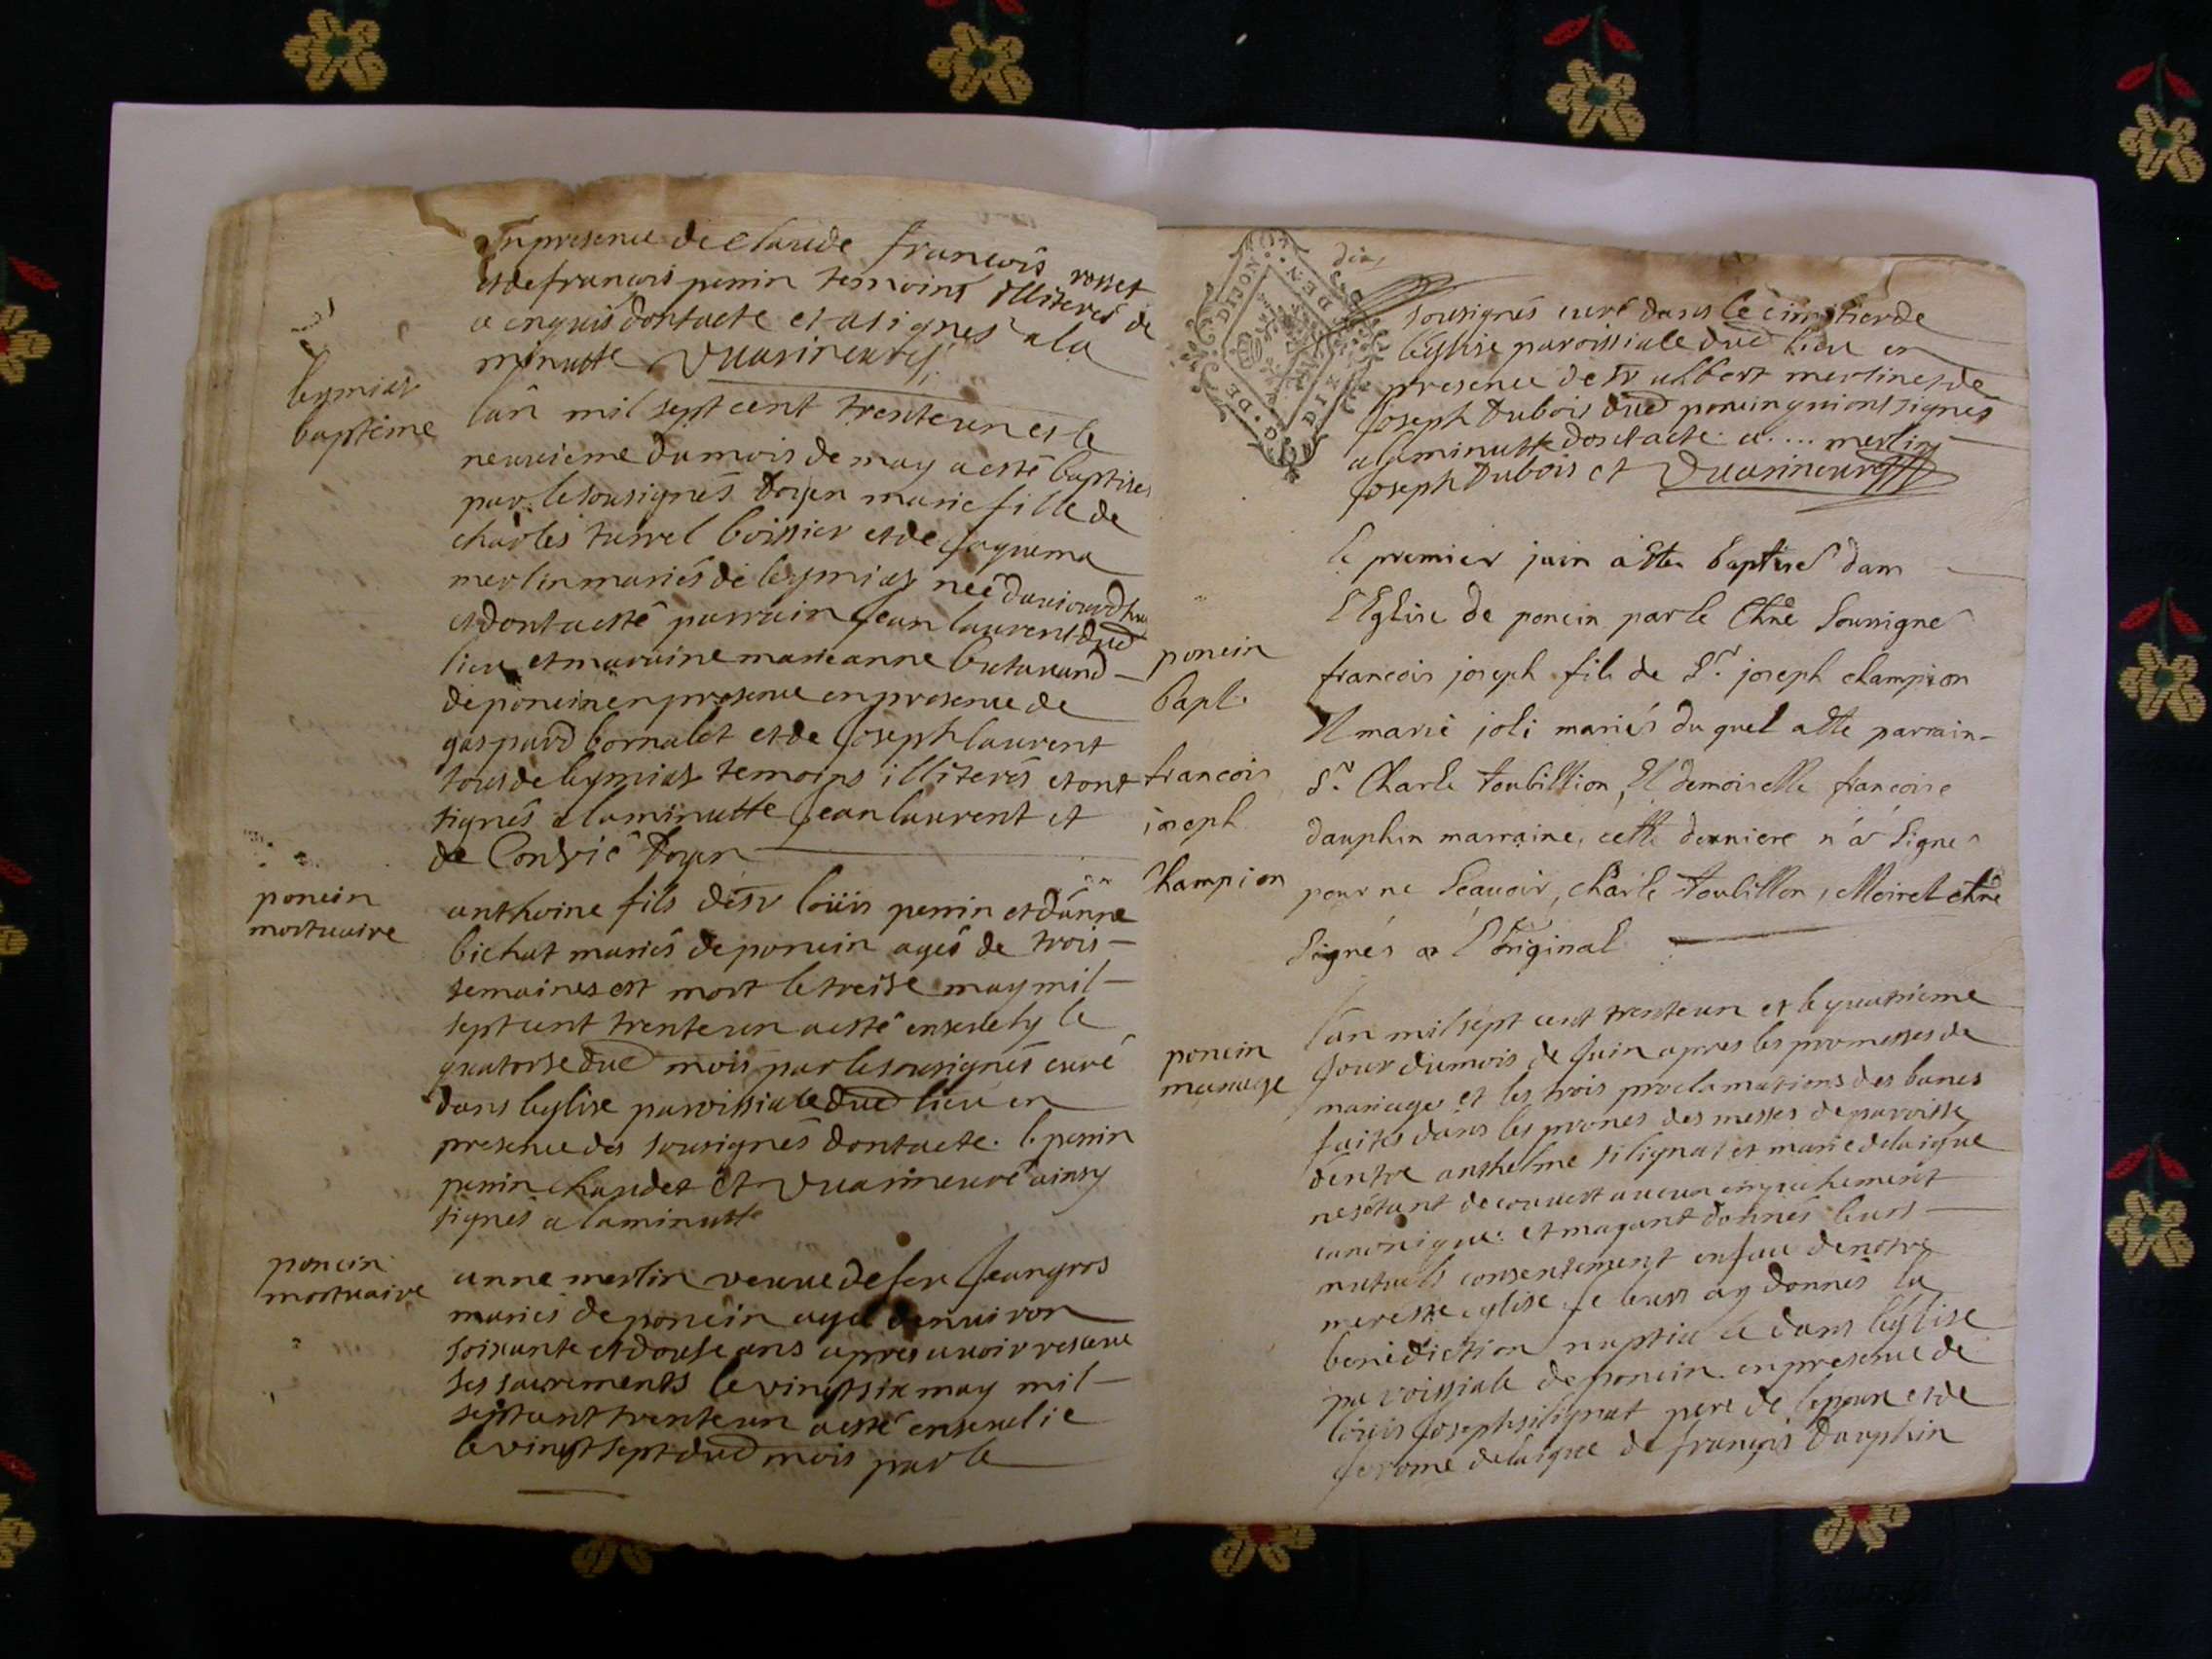 En presence de Claude francois rosset
et de francois perrin temoins illiterés de
ce enquis dont acte et a signés a la
minutte Vuarin curé
leymiat
baptême
lan mil sept cent trente un et le
neuvieme du mois de may a esté baptisée
par le sousignés doyen marie fille de
charles turrel boissier et de Jaquema
merlin mariés de leymiat née daujourdhuy
et dont a esté parrain Jean laurent dud
lieu et maraine marie anne
de poncin en presence en presence de
gaspard bornalet et de Joseph laurent
tous de leymiat temoins illiterés et ont
signés a la minutte Jean laurent et
de Conzié doyen
poncin
mortuaire
anthoine fils de sr loüis perrin et d'anne
bichat mariés de poncin agés de trois
semaines est mort le treise may mil
sept cent trente un a esté ensevely le
quatorse dud mois par le sousignés curé
dans leglise paroissiale dud lieu en
presence des sousignés dont acte. l perrin
perrin chapdet et Vuarin curé ainsy
signés a la minutte
poncin
mortuaire
anne merlin veuve de feu Jean gros
mariés de poncin agé denviron
soixante et douse ans apres avoir receue
ses sacrements le vingt six may mil
sept cent trente un a esté ensevelie
le vingt sept dud mois par le
DIJON
sousignés curé dans le cimetier de
leglise paroissiale dud lieu en
presence de sr albert merlin et de
Joseph Dubois dud poncin qui ont signés
a la minutte dont acte. a.... merlin
Joseph Dubois et Vuarin curé
poncin
bapt.
francois
joseph
Champion
le premier juin a Ette baptisé dans
l'Eglise de poncin par le Chne Soussigne
francois joseph fils de Sr. joseph champion
Et marie joli mariés du quel a Ette parrain
Sr. Charle toubillion, Et demoiselle francoise
dauphin marraine, cette derniere n'a Signe
pour ne Scauoir, charle toubillon, Moiret chne
Signés a l'original
poncin
mariage
l'an mil sept cent trente un et le quatrieme
Jour du mois de Juin apres les promesses de
mariages et les trois proclamations des bancs
faites dans les prones des messes de paroisse
dentre anthelme silignat et marie delaigue
ne sétant decouvert aucun empechement
canonique. et mayant donnés leurs
mutuels consentement en face de notre
mere ste eglise Je leurs ay donnés la
benediction nuptiale dans leglise
paroissiale de poncin en presence de
loüis Joseph silignat pere de lepoux et de
Jerome delaigue de françois Dauphin